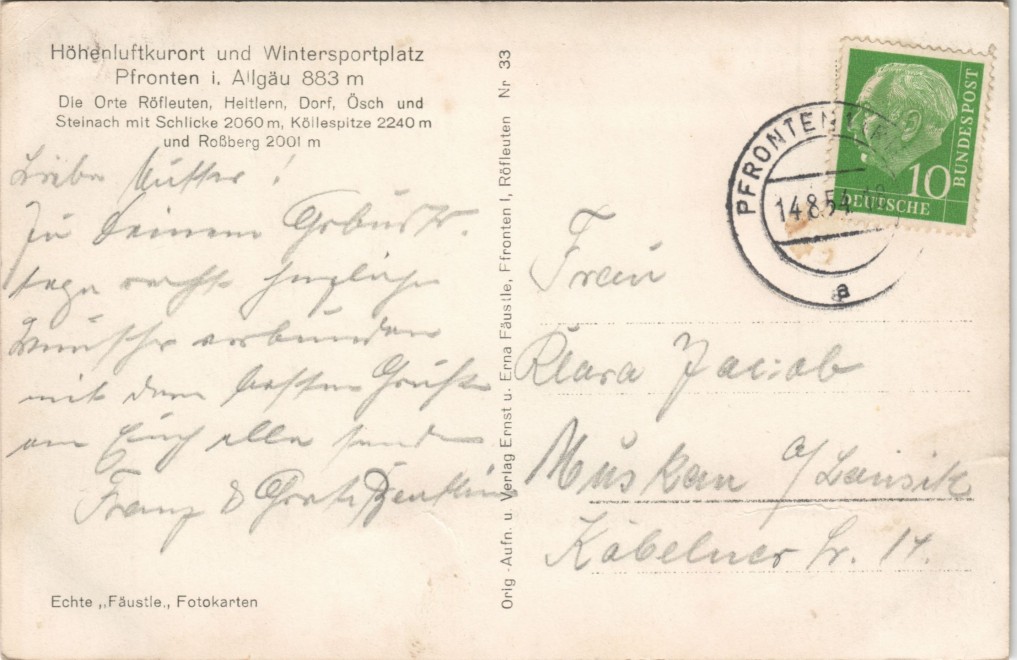 Höhenluftkurort und Wintersportplatz
Pfronten i. Allgäu 883 m
Die Orte Röfleuten, Heitlern, Dorf, Ösch und
Steinach mit Schlicke 2060 m, Köllespitze 2240 m
und Roßberg 2001 m
Liebe Mutter!
Zu Deinem Geburts-
tage recht herzliche
Wünsche verbunden
mit den besten Grüßen
an Euch alle senden
Franz &
Echte „Fäustle„ Fotokarten
Orig.-Aufn. u. Verlag Ernst u. Erna Fäustle, Pfronten I, Röfleuten Nr 33
PFRONTEN
14.8.54
a
10
DEUTSCHE
BUNDESPOST
Frau
Klara Jacob
Muskau a/Lausitz
Köbelner Str. 14.